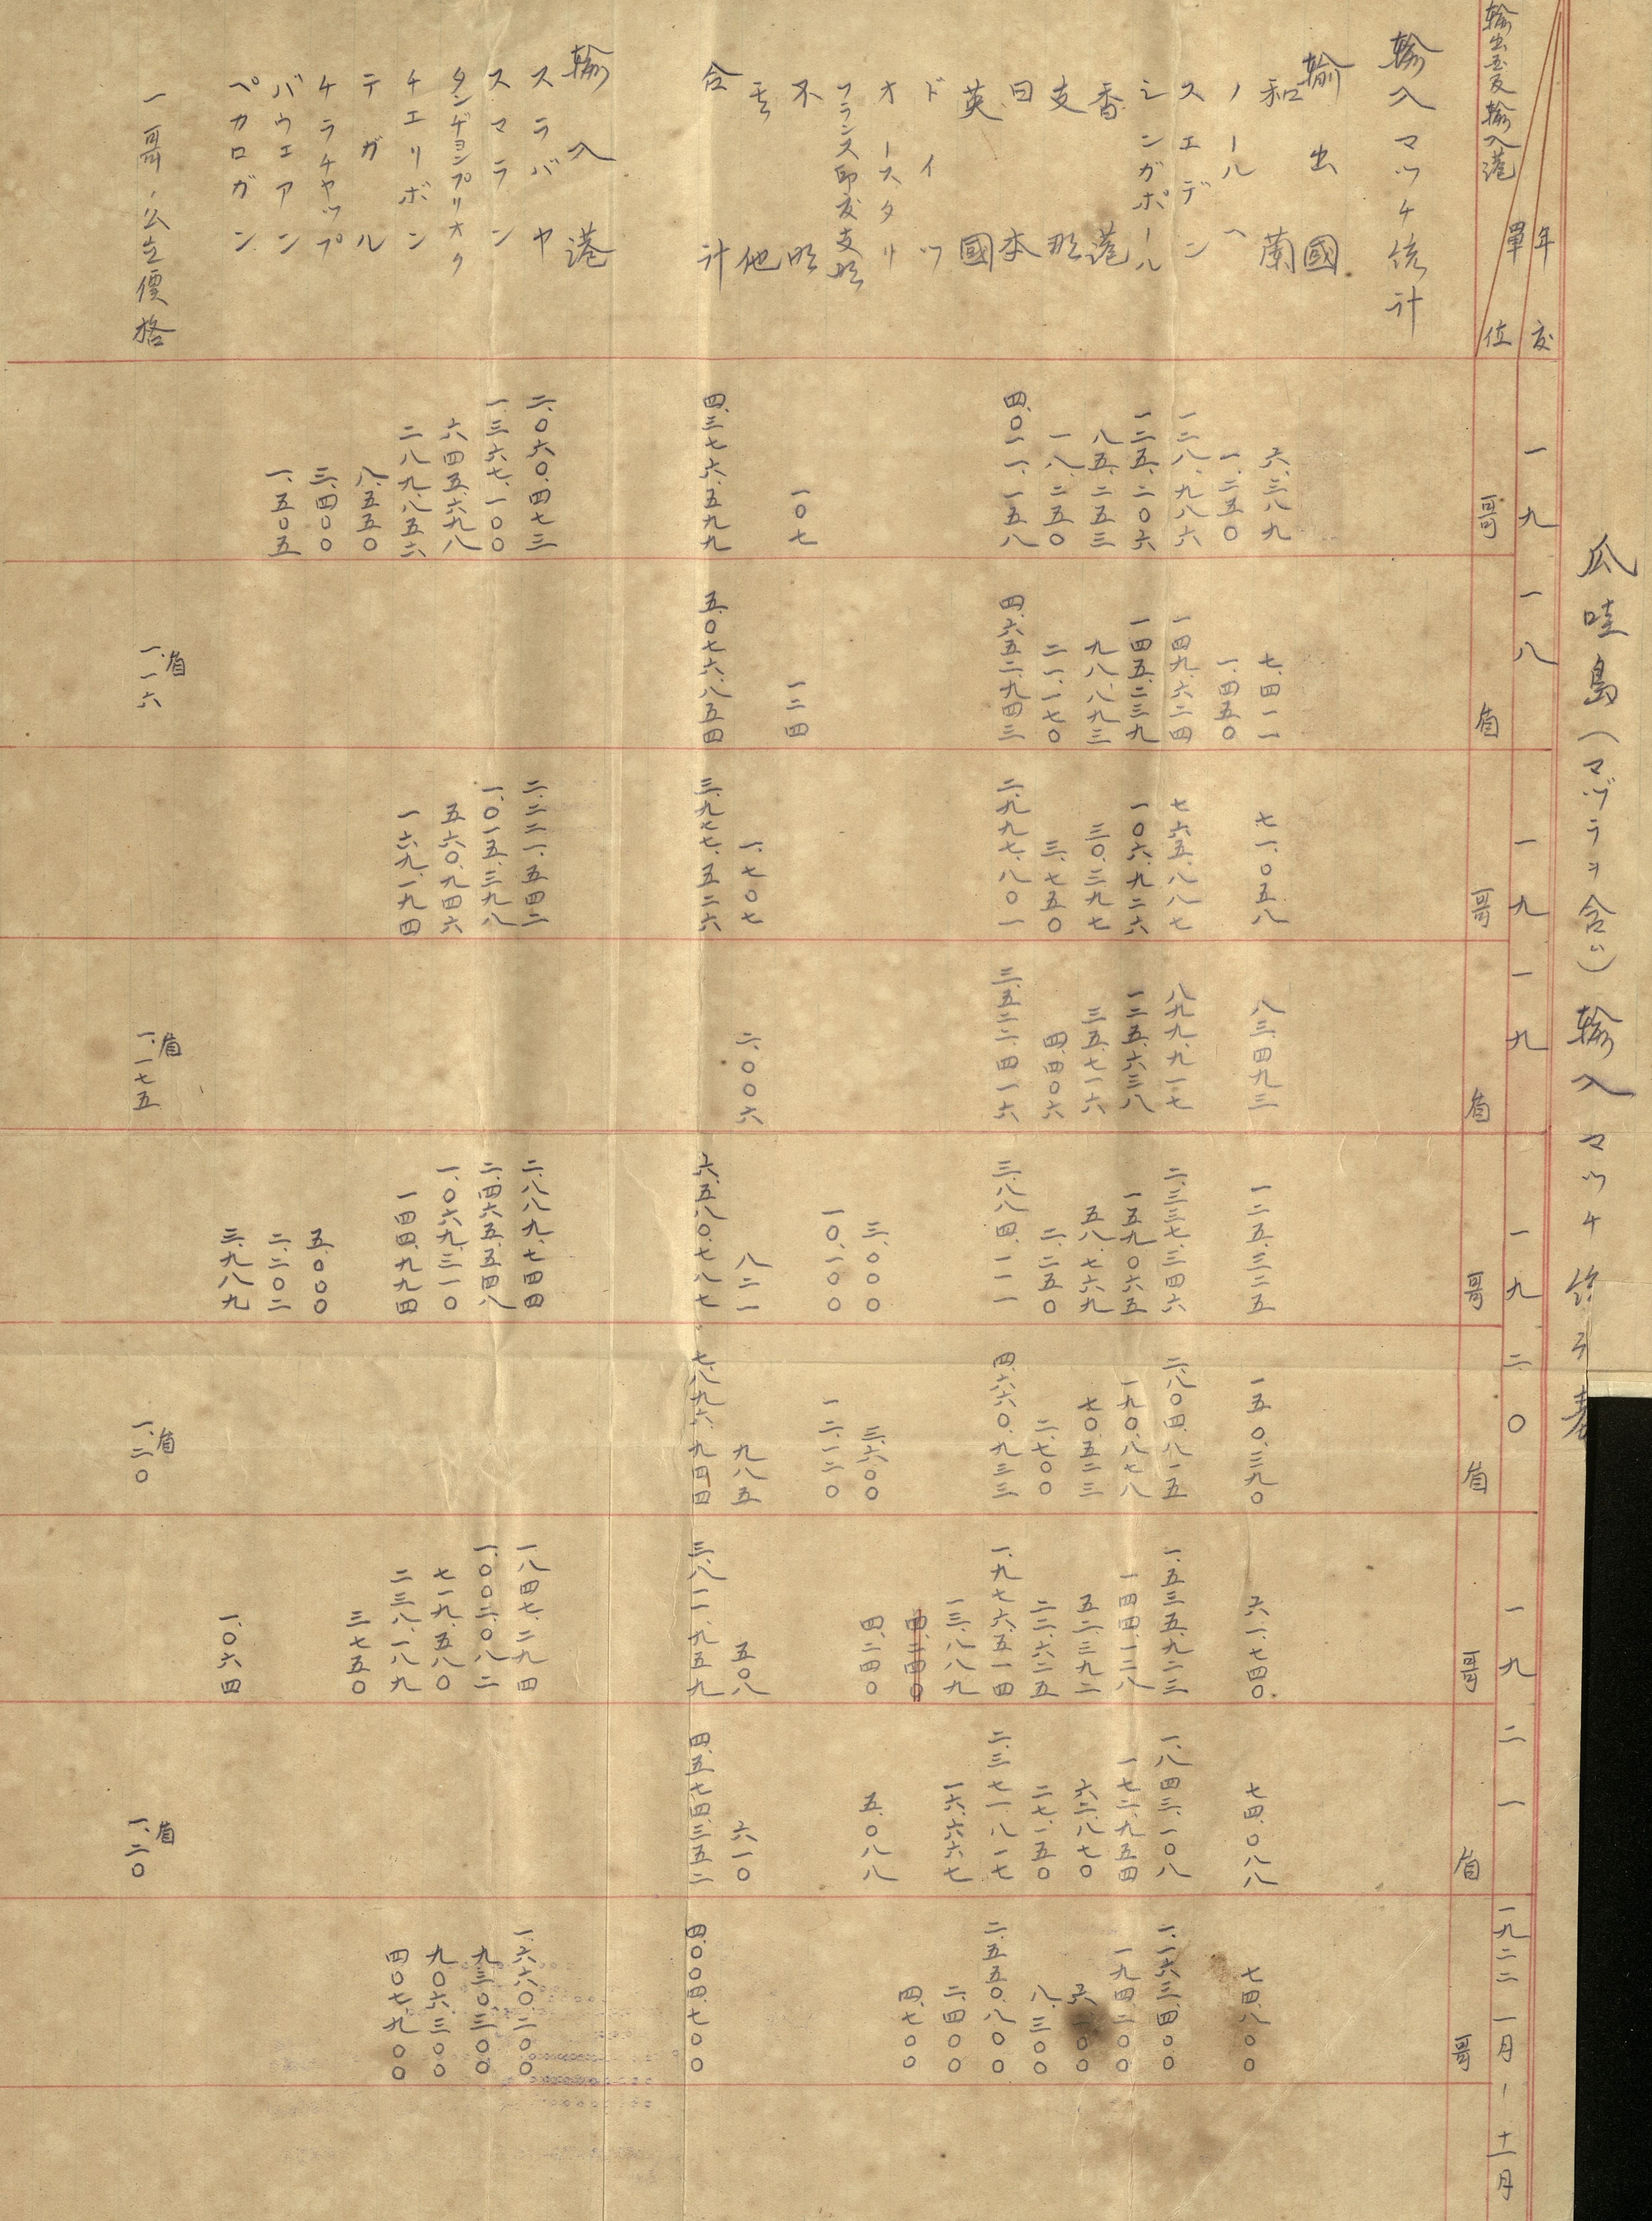 瓜哇島(マヅラヲ含ム)輸入マッチ統計表
年度 一九一八 一九一九 一九二〇 一九二一 一九二二 一月ー十一月
輸出國及輸入港 單位 哥 盾 哥 盾 哥 盾 哥 盾 哥
輸入マッチ統計
輸出國
和蘭 六.三八九 七.四一一 七一.〇五八 八三.四九三 一二五.三二五 一五〇.三九〇 六一.七四〇 七四.〇八八 七四.八〇〇
ノールヘ 一.二五〇 一.四五〇
スエデン 一二八.九八六 一四九.六二四 七六五.八八七 八九九.九一七 二.三三七.三四六 二.八〇四.八一五 一.五三五.九二三 一.八四三.一〇八 一.一六三.四〇〇
シンガポール 一二五.二〇六 一四五.二三九 一〇六.九二六 一二五.六三八 一五九.〇六五 一九〇.八七八 一四四.一二八 一七二.九五四 一九四.二〇〇
香港 八五.二五三 九八.八九三 三〇.三九七 三五.七一六 五八.七六九 七〇.五二三 五二.三九二 六二.八七〇
支那 一八.二五〇 二一.一七〇 三.七五〇 四.四〇六 二.二五〇 二.七〇〇 二二.六二五 二七.一五〇 八.三〇〇
日本 四.〇一一.一五八 四.六五二.九四三 二.九九七.八〇一 三.五二二.四一六 三.八八四.一一一 四.六六〇.九三三 一.九七六.五一四 二.三七一.八一七 二.五五〇.八〇〇
英國 一三.八八九 一六.六六七 二.四〇〇
ドイツ 四.二四〇 四.七〇〇
オースタリ 三.〇〇〇 三.六〇〇 四.二四〇 五.〇八八
フランス印度支那 一〇.一〇〇 一二.一二〇
不明 一〇七 一二四
其他 一.七〇七 二.〇〇六 八二一 九八五 五〇八 六一〇
合計 四.三七六.五九九 五.〇七六.八五四 三.九七七.五二六 六.五八〇.七八七 七.八九六.九四四 三.八一一.九五九 四.五七四.三五二 四.〇〇四.七〇〇
輸入港
スラバヤ 二.〇六〇.四七三 二.二二一.五四二 二.八八九.七四四 一.八四七.二九四 一.六六〇.二〇〇
スマラン 一.三六七.一〇〇 一.〇一五.三九八 二.四六五.五四八 一.〇〇二.〇八二 九三〇.三〇〇
タンヂョンプリオク 六四五.六九八 五六〇.九四六 一.〇六九.三一〇 七一九.五八〇 九〇六.三〇〇
チエリボン 二八九.八五六 一六九.一九四 一四四.九九四 二三八.一八九 四〇七.九〇〇
テガル 八.五五〇 三七五〇
チラチヤップ 三.四〇〇 五.〇〇〇
バウエアン 一.五〇五 二.二〇二
ペカロガン 三.九八九 一.〇六四
一哥ノ公定價格 盾一.一六 盾一.一七五 盾一.二〇 盾一.二〇